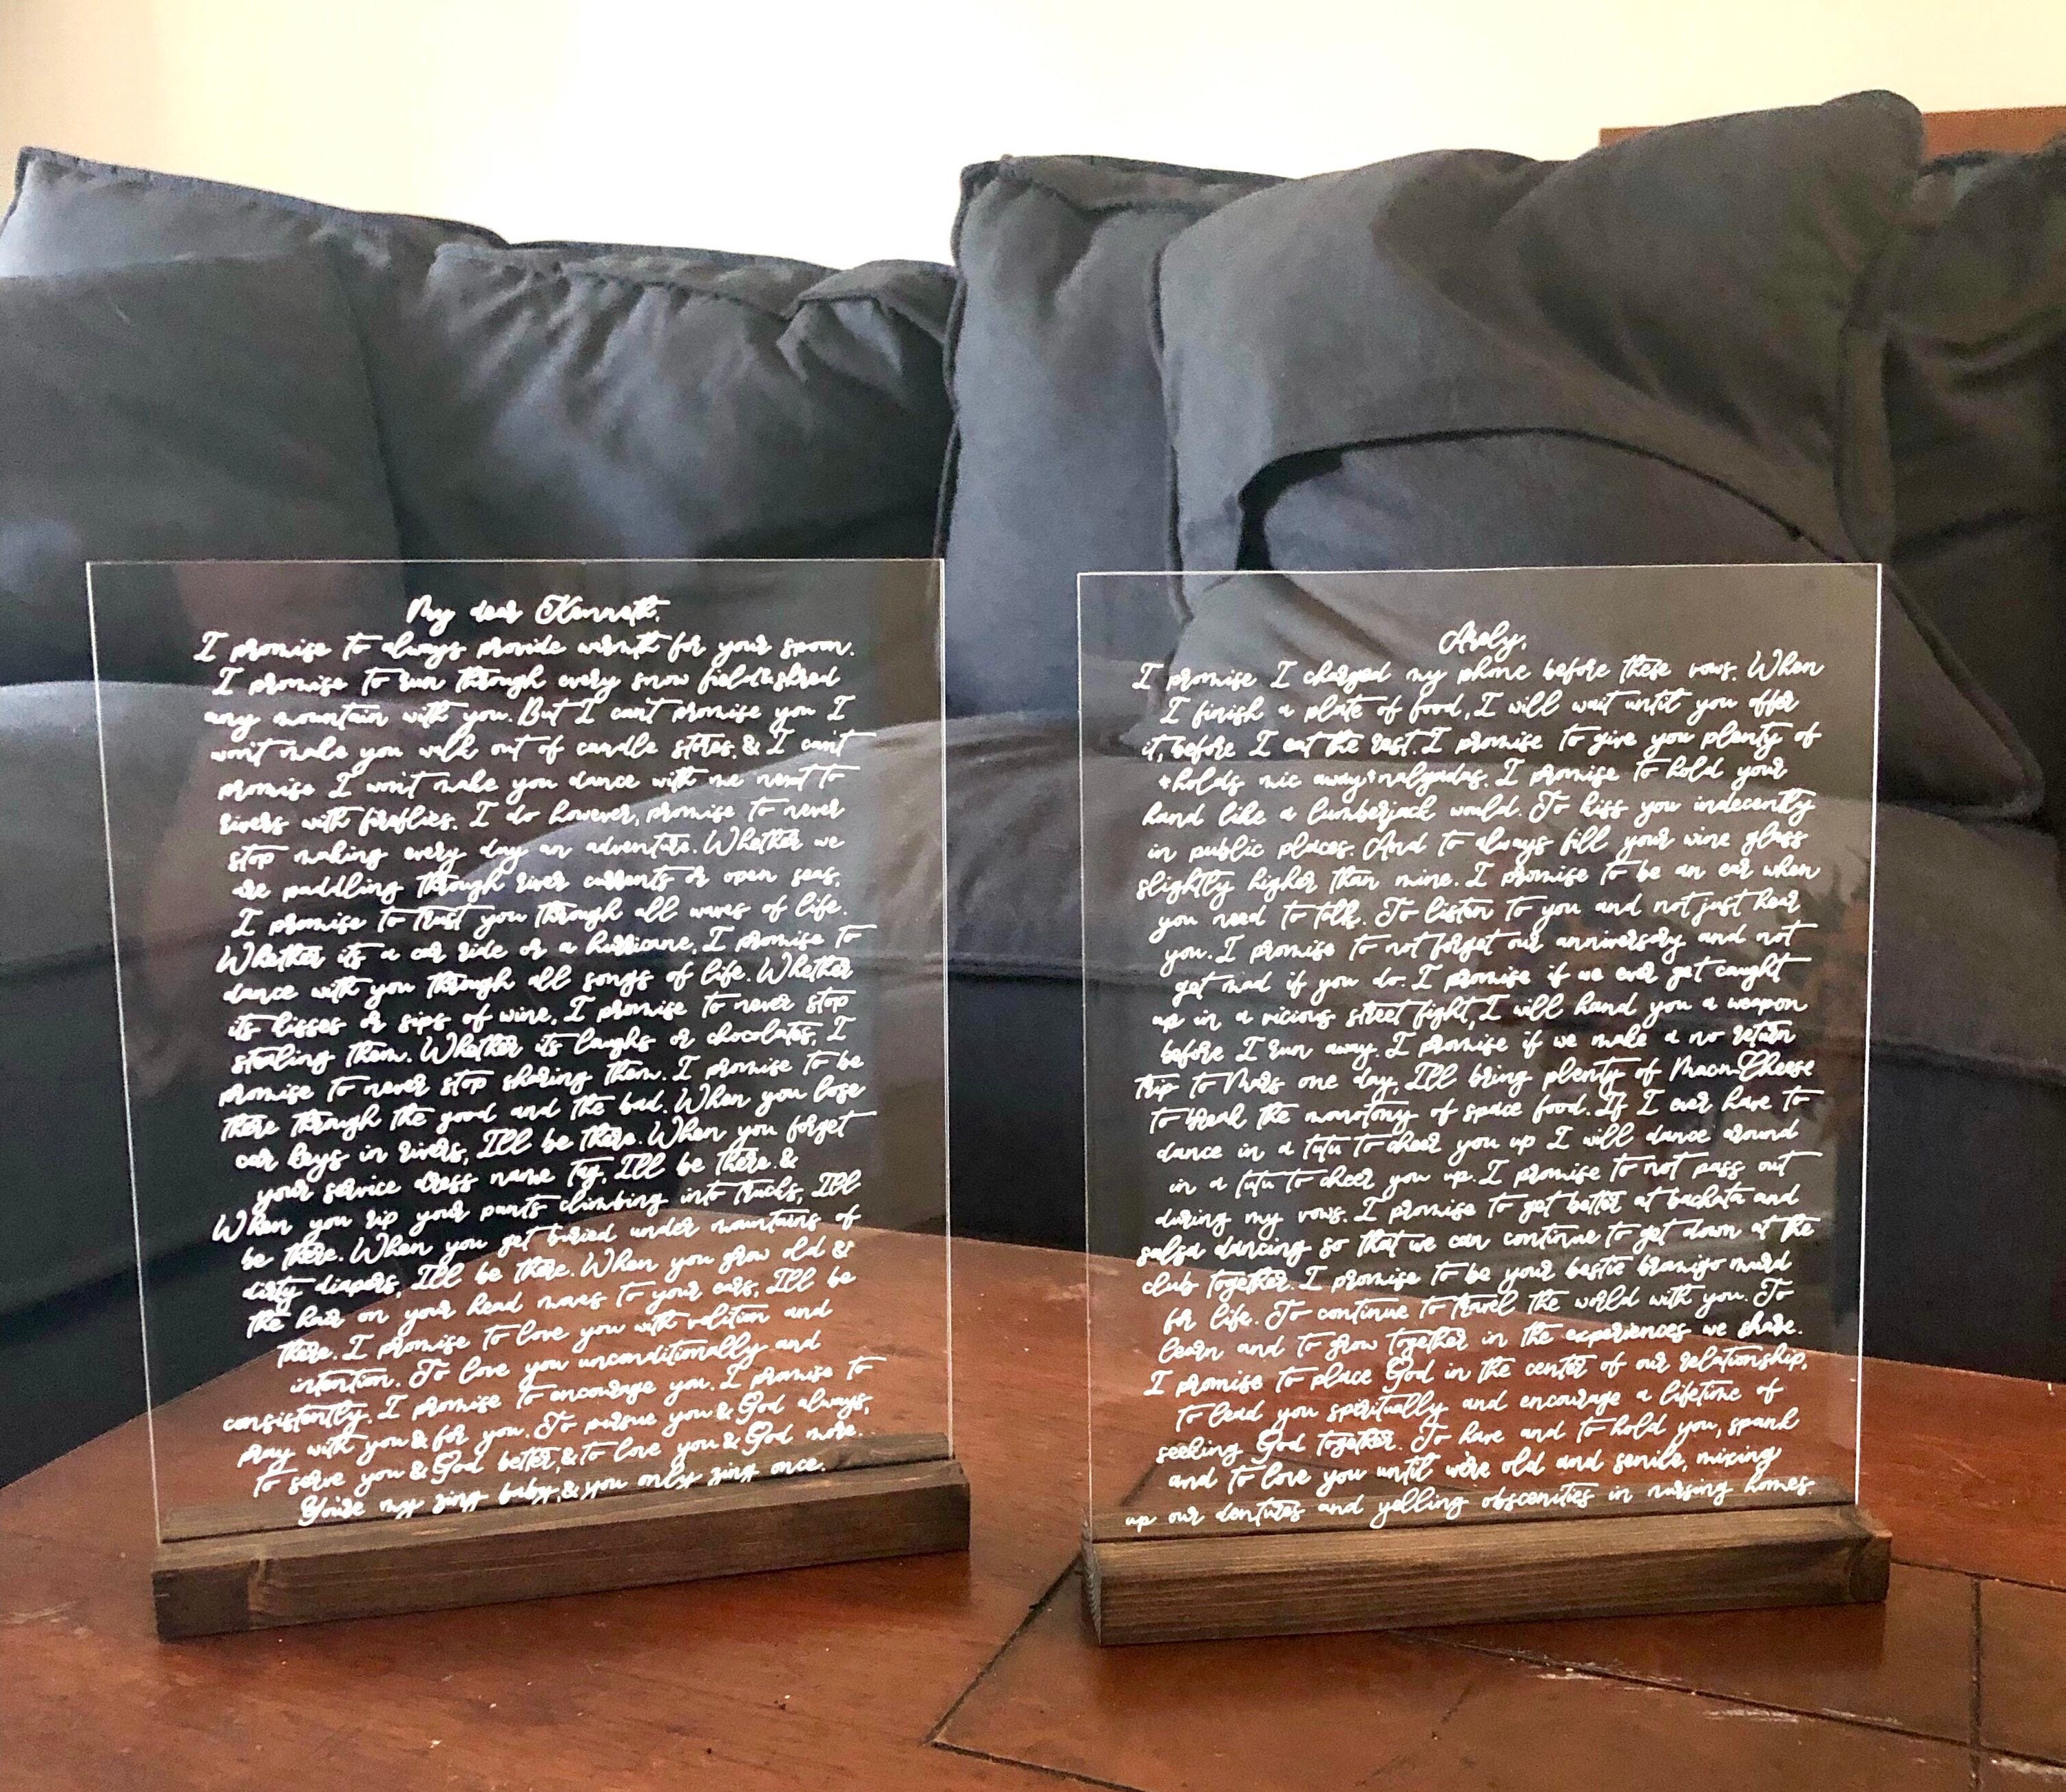 My dear Kenneth,
I promise to always provide warmth for your spoon.
I promise to run through every snow field & shred
any mountain with you. But I can't promise you I
won't make you walk out of candle stores, & I can't
promise I won't make you dance with me next to
rivers with fireflies. I do however, promise to never
stop making every day an adventure. Whether we
are paddling through river currents or open seas,
I promise to trust you through all waves of life.
Whether its a car ride or a hurricane, I promise to
dance with you through all songs of life. Whether
its kisses or sips of wine, I promise to never stop
stealing them. Whether its laughs or chocolates, I
promise to never stop sharing them. I promise to be
there through the good and the bad. When you lose
car keys in rivers, I'll be there. When you forget
your service dress name tag, I'll be there. &
When you rip your pants climbing into trucks, I'll
be there. When you get buried under mountains of
dirty diapers, I'll be there. When you grow old &
the hair on your head moves to your ears, I'll be
there. I promise to love you with volition and
intention. To love you unconditionally and
consistently. I promise to encourage you. I promise to
pray with you & for you. To pursue you & God always,
to serve you & God better, & to love you & God more.
You're my zing baby, & you only zing once.
Arely,
I promise I charged my phone before these vows. When
I finish a plate of food, I will wait until you offer
it, before I eat the rest. I promise to give you plenty of
*holds mic away* nalgadas. I promise to hold your
hand like a lumberjack would. To kiss you indecently
in public places. And to always fill your wine glass
slightly higher than mine. I promise to be an ear when
you need to talk. To listen to you and not just hear
you. I promise to not forget our anniversary and not
get mad if you do. I promise if we ever get caught
up in a vicious street fight, I will hand you a weapon
before I run away. I promise if we make a no return
trip to Mars one day, I'll bring plenty of Mac-n-Cheese
to break the monotony of space food. If I ever have to
dance in a tutu to cheer you up I will dance around
in a tutu to cheer you up. I promise to not pass out
during my vows. I promise to get better at bachata and
salsa dancing so that we can continue to get down at the
club together. I promise to be your bestie bramigo murd
for life. To continue to travel the world with you. To
learn and to grow together in the experiences we share.
I promise to place God in the center of our relationship,
to lead you spiritually and encourage a lifetime of
seeking God together. To have and to hold you, spank
and to love you until we're old and senile, mixing
up our dentures and yelling obscenities in nursing homes.